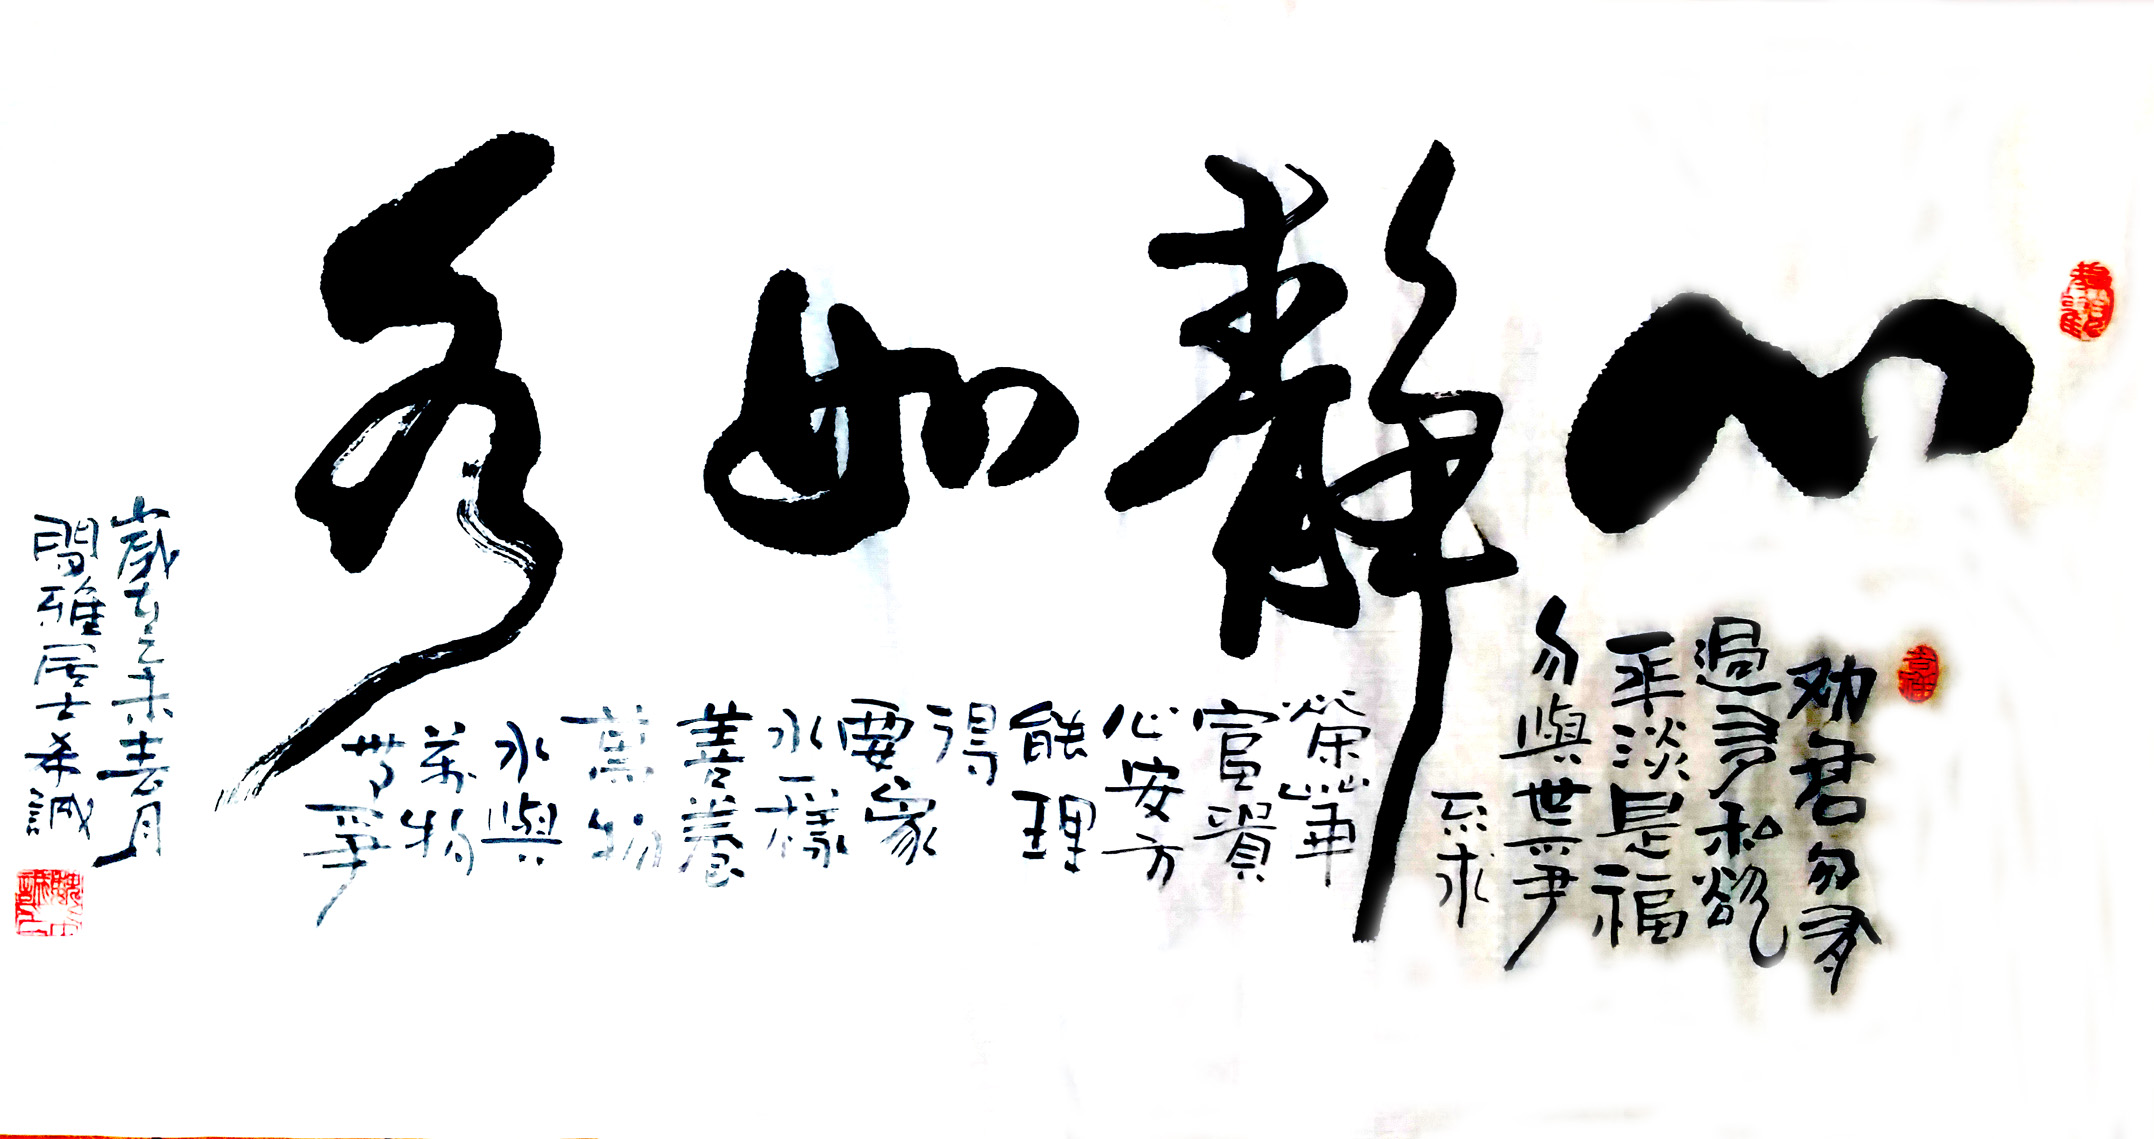 心靜如水
劝君勿多
過多私欲
平淡是福
勿與世無爭
不求
榮華
富貴
心安方
能理
得
要家
水一樣
善養
萬物
水與
萬物
無爭
歲在乙未春月
閒雅居士希誠